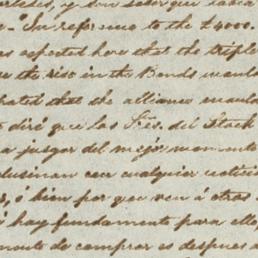 y don
"In reference to the £4000.
as expected here that the triple
the rise in the Bonds would
that the alliance would
diré que los Sres. del Stock
a juzgar del mejor momento
cualquier noticia
ó bien por que ven á otros
ó hay fundamento para ello,
de comprar es despues d